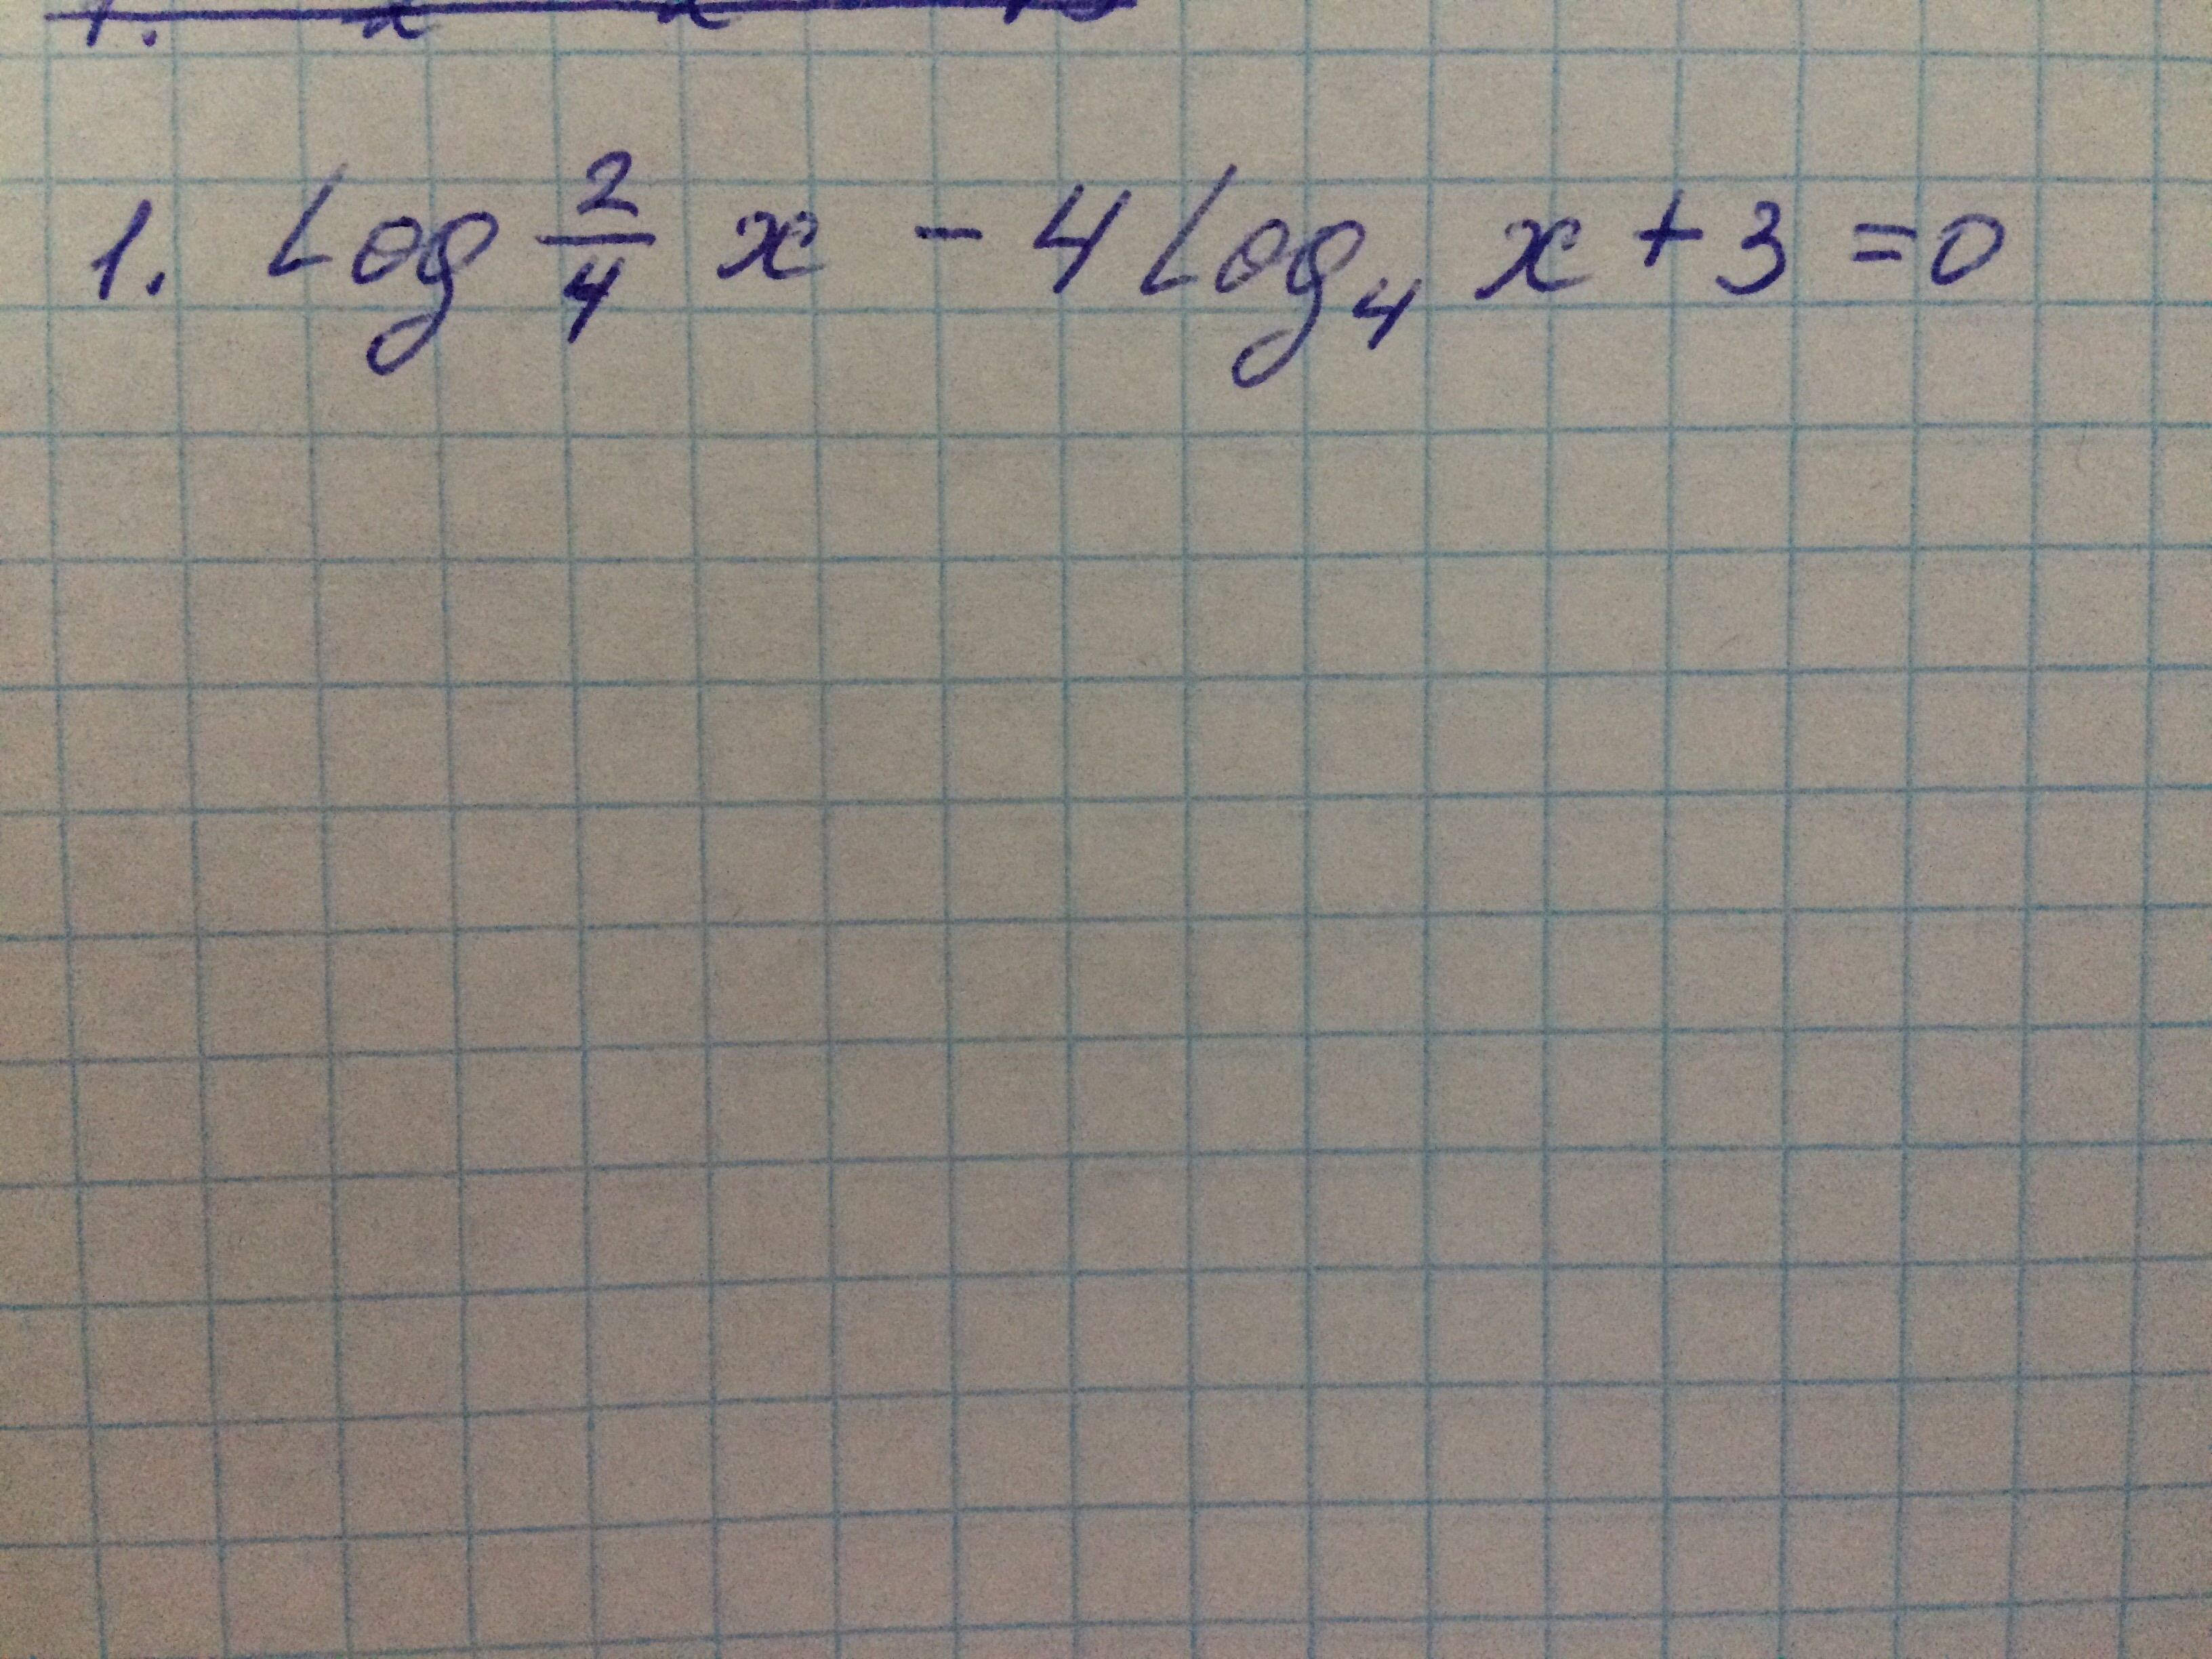 1. Log 2/4 x - 4 Log₄ x + 3 = 0